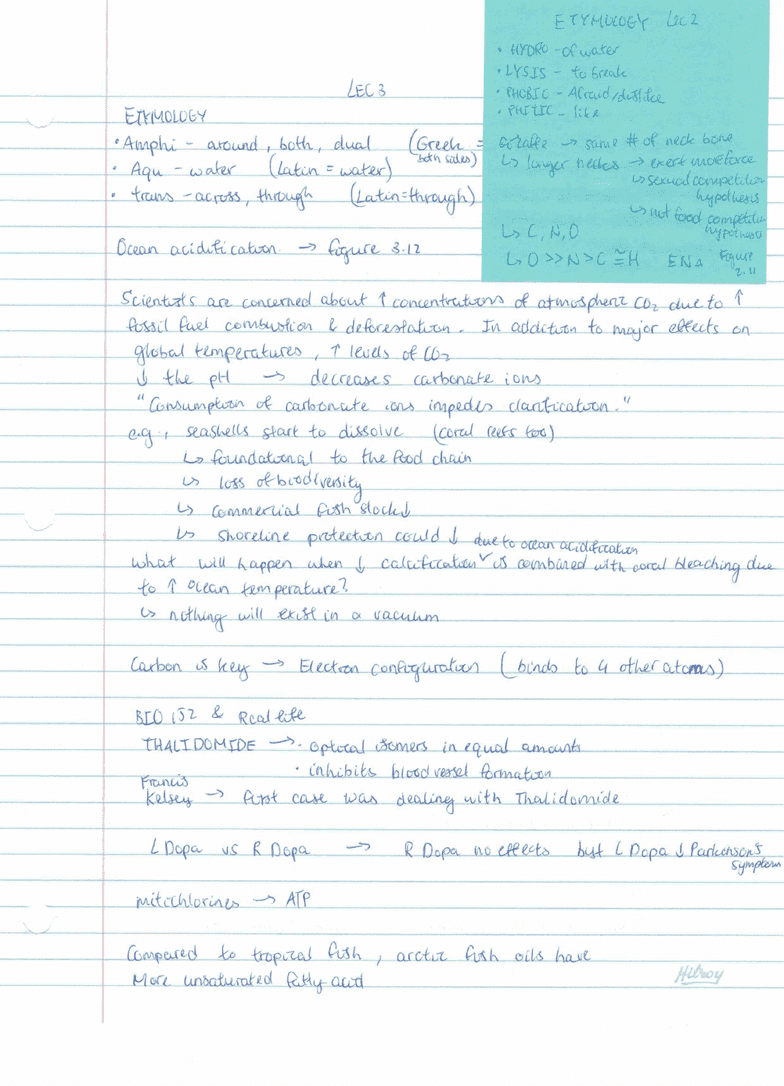 ETYMOLOGY Lec 2
• HYDRO - of water
• LYSIS - to break
• PHOBIC - Afraid/dislike
• PHILIC - like
Giraffe → same # of neck bone
↳ longer necks → exert more force
↳ sexual competition
hypothesis
↳ not food competition
hypothesis
↳ C, N, O
↳ O >> N > C ≅ H EN△ Figure
2.11
LEC 3
ETYMOLOGY
• Amphi - around, both, dual (Greek =
both sides)
• Aqu - water (Latin = water)
• trans - across, through (Latin = through)
Ocean acidification → figure 3.12
Scientists are concerned about ↑ concentrations of atmospheric CO₂ due to ↑
fossil fuel combustion & deforestation. In addiction to major effects on
global temperatures, ↑ levels of CO₂
↓ the pH → decreases carbonate ions
"Consumption of carbonate ions impedes clarification."
e.g., seashells start to dissolve (coral reefs too)
↳ foundational to the food chain
↳ loss of biodiversity
↳ commercial fish stock ↓
↳ Shoreline protection could ↓
due to ocean acidification
what will happen when ↓ calcification ˅ is combined with coral bleaching due
to ↑ ocean temperature?
↳ nothing will exist in a vacuum
Carbon is key → Electron configuration (binds to 4 other atoms)
BIO 152 & Real life
THALIDOMIDE → • optical isomers in equal amounts
• inhibits blood vessel formation
Francis
Kelsey → first case was dealing with Thalidomide
L Dopa vs R Dopa → R Dopa no effects but L Dopa ↓ Parkinson's
symptom
mitichlorines → ATP
Compared to tropical fish, arctic fish oils have
More unsaturated fatty acid
Hilroy